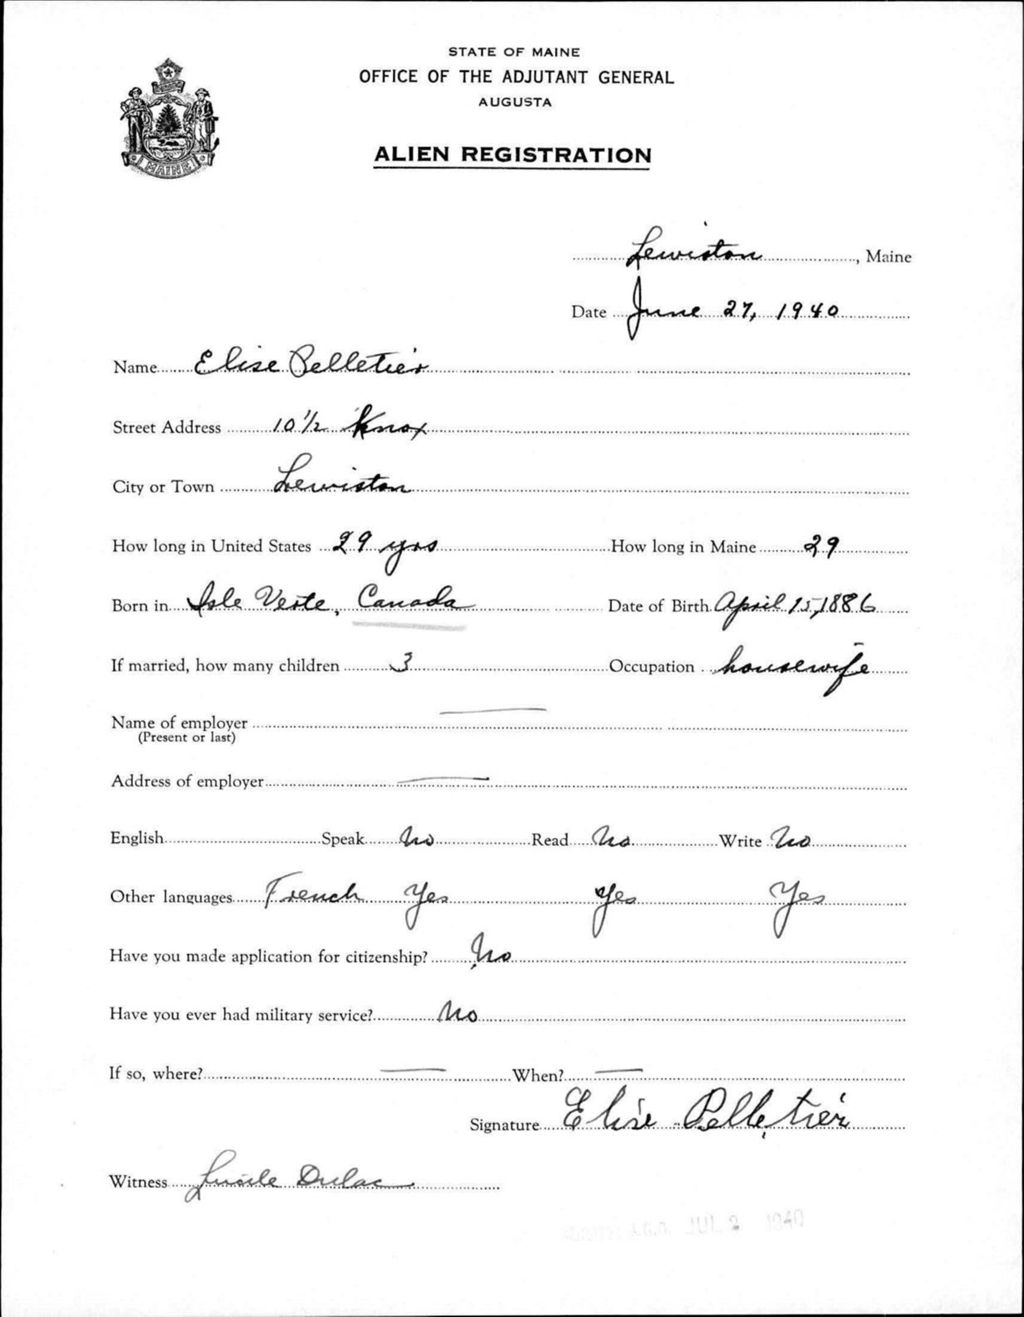 STATE OF MAINE
OFFICE OF THE ADJUTANT GENERAL
AUGUSTA
ALIEN REGISTRATION
MAINE
Lewiston, Maine
Date June 27, 1940
Name Elise Pelletier
Street Address 10 1/2 Knox
City or Town Lewiston
How long in United States 29 yrs How long in Maine 29
Born in Isle Verte, Canada Date of Birth April 15, 1886
If married, how many children 3 Occupation housewife
Name of employer
(Present or last)
Address of employer
English Speak No Read No Write No
Other languages French Yes Yes Yes
Have you made application for citizenship? No
Have you ever had military service? No
If so, where? When?
Signature Elise Pelletier
Witness Lucile Dulac
JUL 2 1940